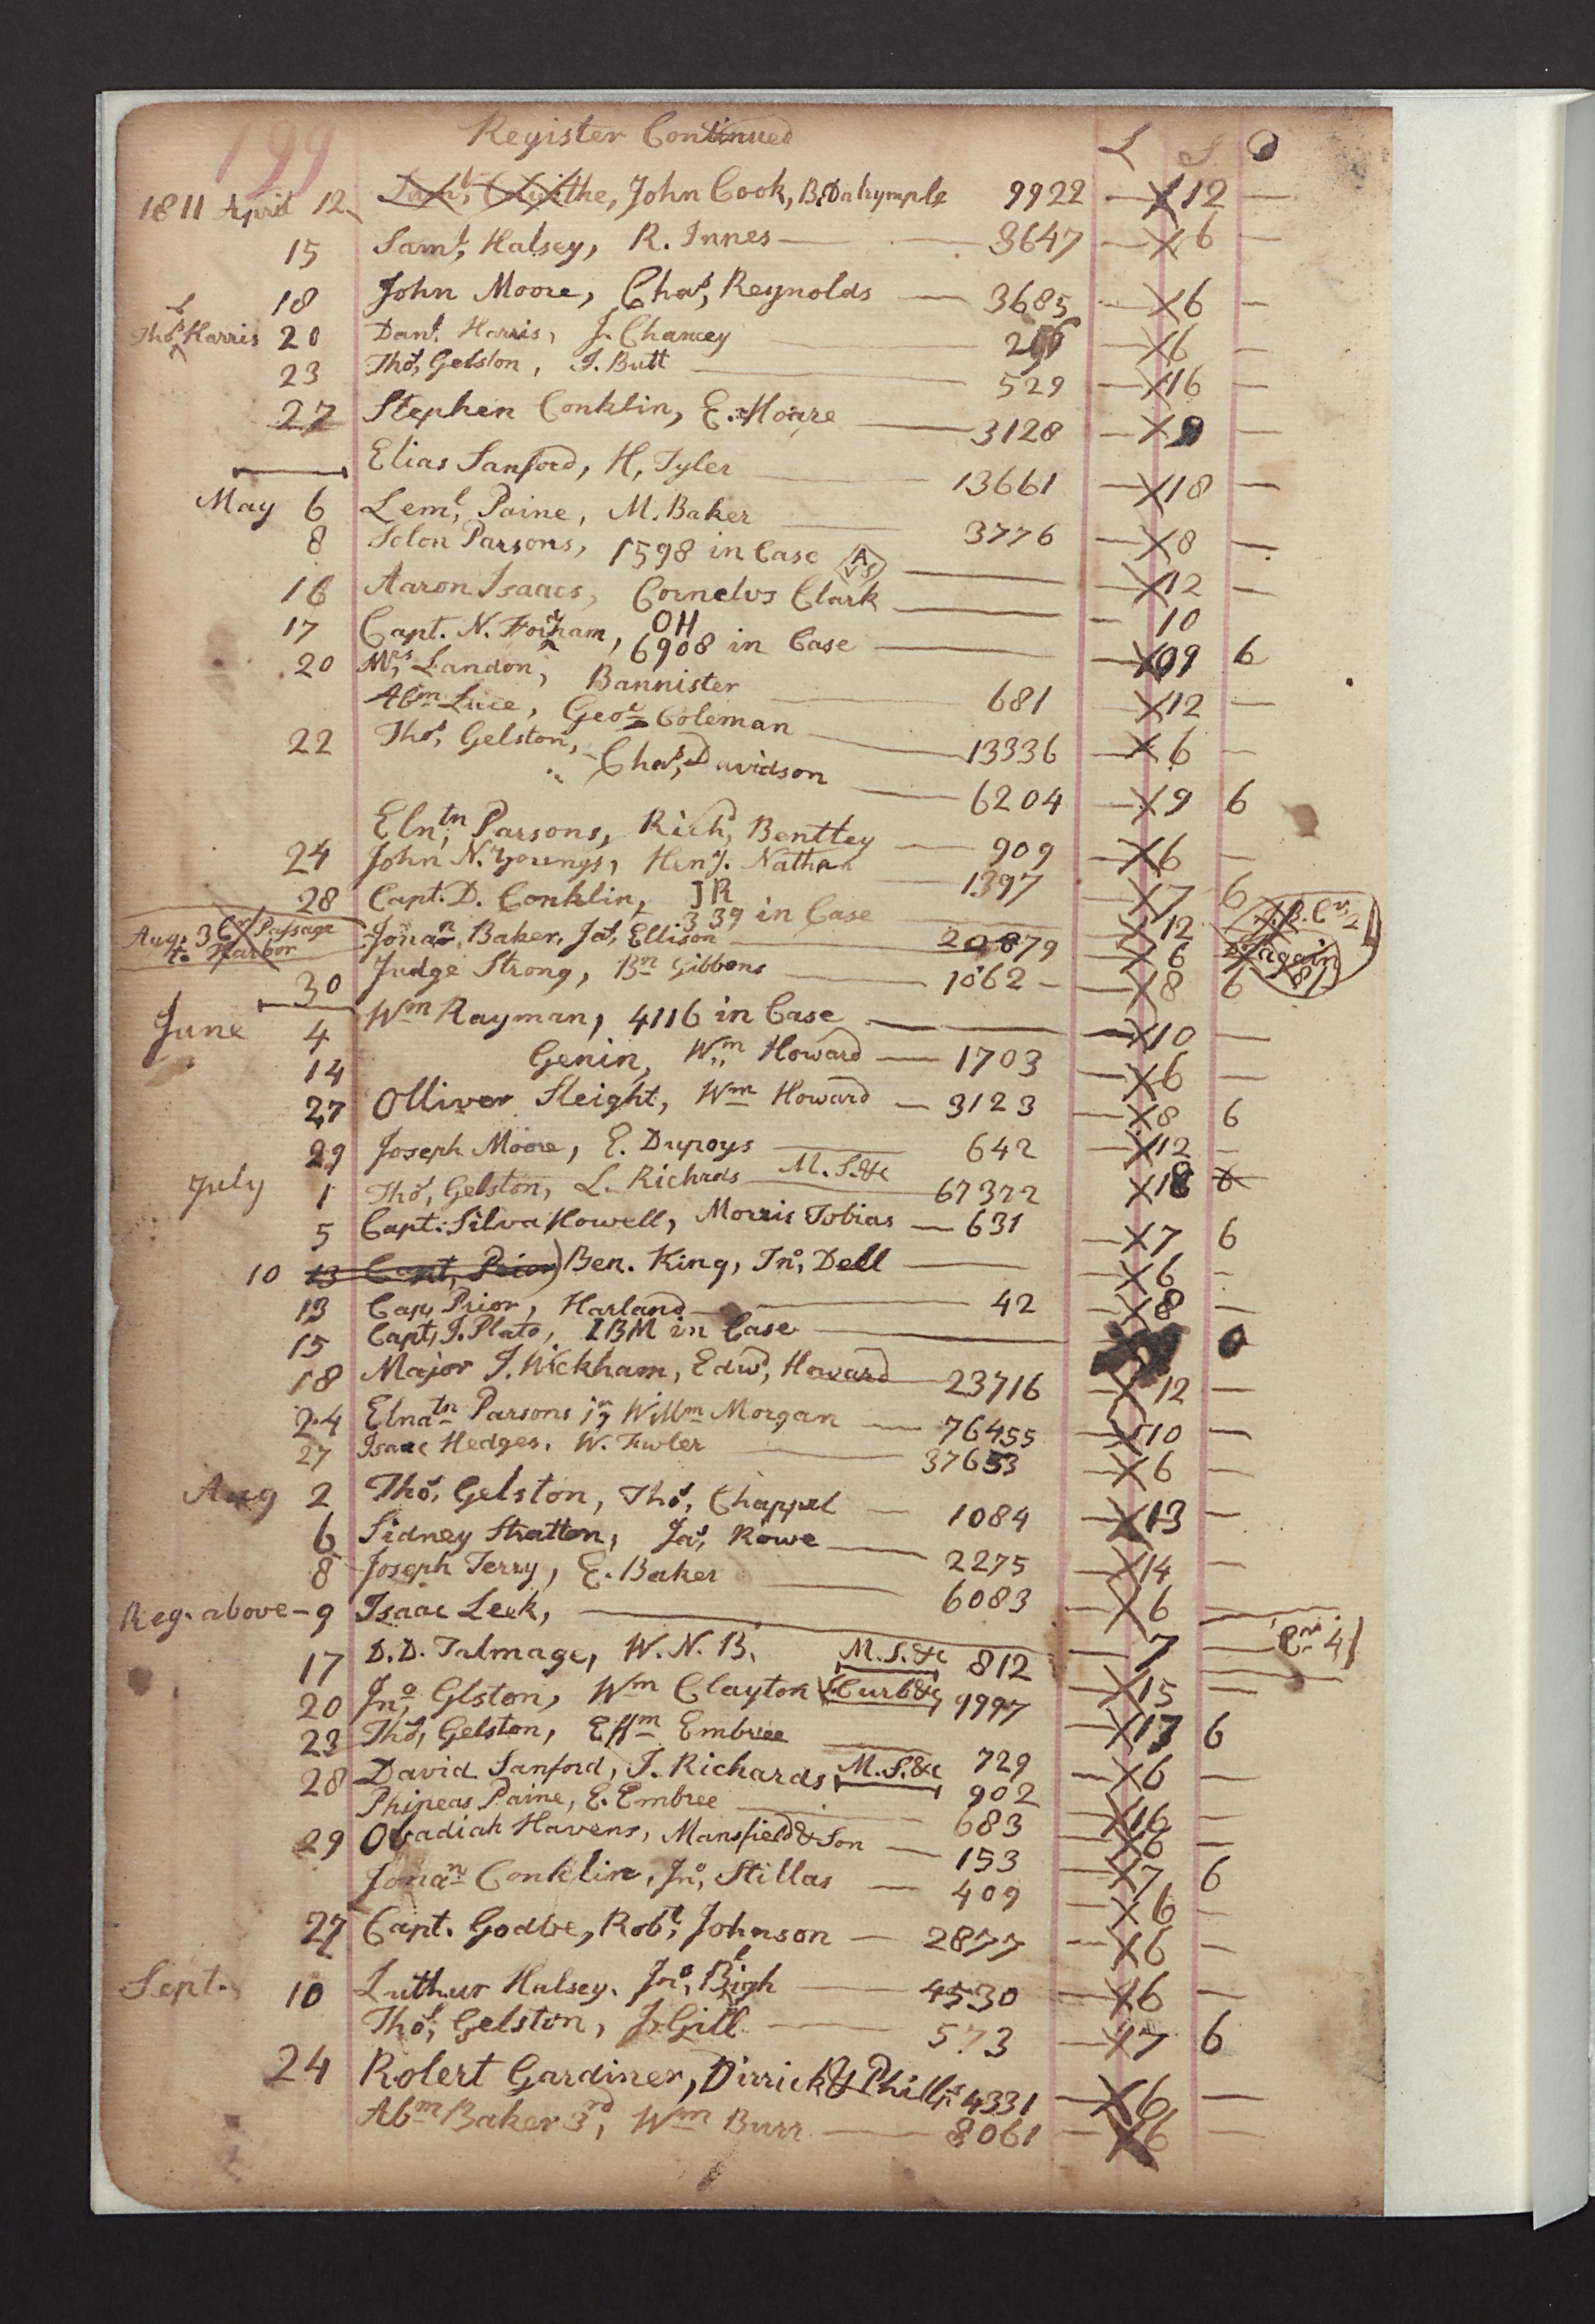 199 Register Continued L S D
1811 April 12 John Cook, B. Dalrymple 9922 — X 12 —
15 Saml, Halsey, R. Innes — 3647 — X 6 —
18 John Moore, Chas, Reynolds — 3685 — X 6 —
Thos Harris 20 Danl. Harris, J. Chancey — X 6 —
23 Thos, Gelston, J. Butt — 529 — X 16 —
27 Stephen Conklin, E. Hoare — 3128 — X —
Elias Sanford, H, Tyler — 13661 — X 18 —
May 6 Leml, Paine, M. Baker — 3776 — X 8 —
8 Solon Parsons, 1598 in Case — X 12 —
16 Aaron Isaacs, Cornelus Clark — 10
17 Capt. N. Fordham, OH 6908 in Case — X 09 6
20 Mrs, Landon, Bannister — 681 — X 12 —
Abm Luce, Geoe Coleman — 13336 — X 6 —
22 Thos, Gelston, Chas, Davidson — 6204 — X 9 6
Elntn, Parsons, Richd, Benttey — 909 — X 6 —
24 John N. Youngs, Heny. Nathan — 1397 — X 7 6
28 Capt. D. Conklin, JR 339 in Case — X 12
Aug. 3 Cr Passage to Harbor Jonan, Baker, Jas, Ellison — 20879 — X 6 again
30 Judge Strong, Bn Gibbons — 1062 — X 8 6
June 4 Wm Rayman, 4116 in Case — X 10 —
14 Genin, Wm Howard — 1703 — X 6 —
27 Olliver Sleight, Wm Howard — 3123 — X 8 6
29 Joseph Moore, E. Dupoys — 642 — X 12 —
July 1 Thos, Gelston, L. Richrds M. S. &c 67372 X 18
5 Capt. Silva Howell, Morris Tobias — 631 — X 7 6
10 13 Capt, Prior) Ben. King, Jno, Dell — X 6 —
13 Cap, Prior, Harland — 42 — X 8 —
15 Capt, J. Plato, IBM in Case — 0
18 Major J. Wickham, Edwd, Howard — 23716 — X 12 —
24 Elnatn Parsons jr, Willm Morgan — 76455 — X 10 —
27 Isaac Hedges. W. Fowler — 37653 — X 6 —
Aug 2 Thos, Gelston, Thos, Chappel — 1084 — X 13 —
6 Sidney Stratton, Jas, Rowe — 2275 — X 14 —
8 Joseph Terry, E. Baker — 6083 — X 6 —
Reg. above — 9 Isaac Leek, — 7 —
17 D. D. Talmage, W. N. B. M. S. &c 812 — X 15 —
20 Jno, Glston, Wm Clayton Curb &c 9997 — X 17 6
23 Thos, Gelston, Effm Embree — 729 — X 6 —
28 David Sanford, J. Richards M. S. &c 902 — X 16 —
Phineas Paine, E. Embree — 683 — X 6 —
29 Obadiah Havens, Mansfield & Son — 153 — X 7 6
Jonan Conklin, Jno, Stillas — 409 — X 6 —
27 Capt. Godbe, Robt, Johnson — 2877 — X 6 —
Sept. 10 Luthur Halsey. Jno, — 4530 — X 6 —
Thos, Gelston, J. Gill — 573 — X 7 6
24 Robert Gardiner, Dirrick & Phillps 4331 — X 6 —
Abm Baker 3rd, Wm Burr — 8061 — X 6 —